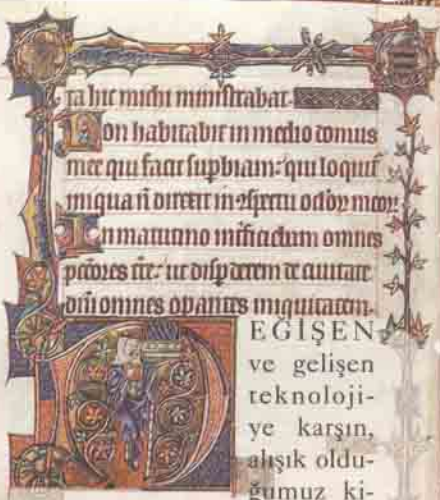 ta hic michi ministrabat.
Non habitabit in medio domus
mee qui facit supbiam: qui loquit
iniqua ñ direxit in ɔspectu oclorꝝ meorꝝ
In matutino interficiebam omnes
pctores tre: ut disp derem de ciuitate
dñi omnes opantes iniquitatem.
D
EĞİŞEN
ve gelişen
teknoloji-
ye karşın,
alışık oldu-
ğumuz ki-